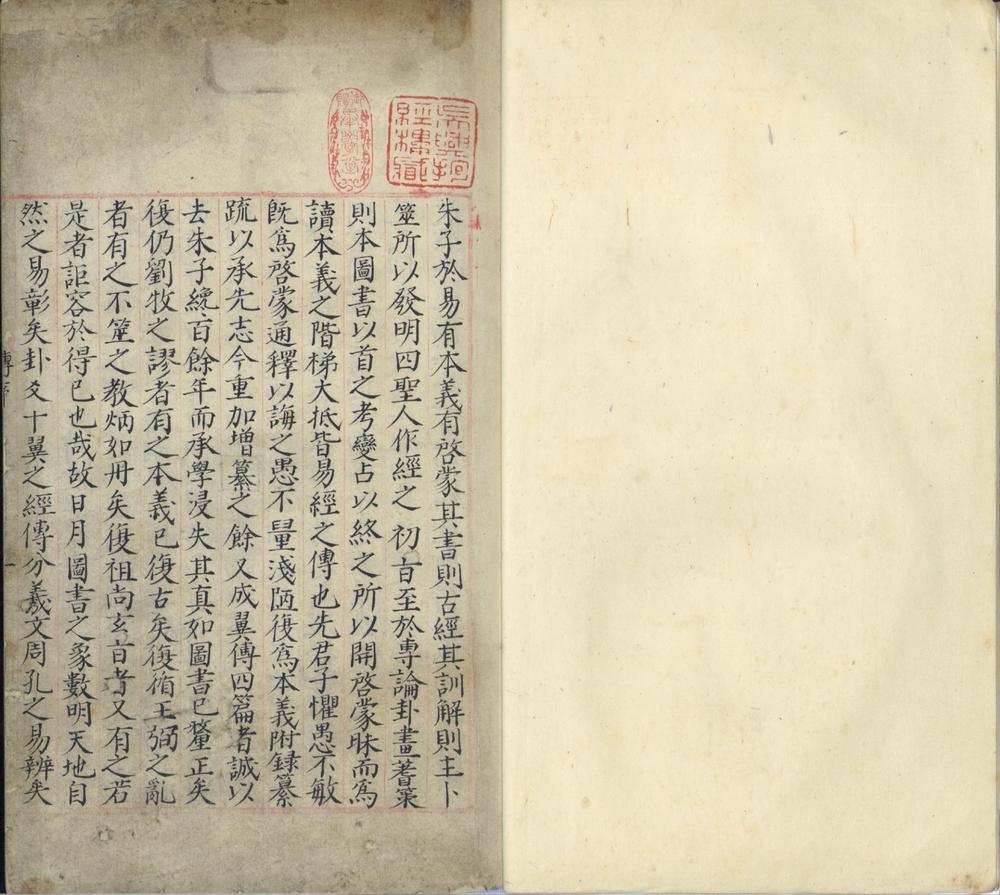 朱子於易有本義有啓蒙其書則古經其訓解則主卜
筮所以發明四聖人作經之初旨至於專論卦畫蓍策
則本圖書以首之考變占以終之所以開啓蒙昧而爲
讀本義之階梯大抵皆易經之傳也先君子懼愚不敏
旣爲啓蒙通釋以誨之愚不量淺陋復爲本義附録纂
疏以承先志今重加增纂之餘又成翼傳四篇者誠以
去朱子纔百餘年而承學浸失其真如圖書已釐正矣
復仍劉牧之謬者有之本義已復古矣復循王弼之亂
者有之不筮之教炳如丹矣復祖尚玄旨者又有之若
是者詎容於得已也哉故日月圖書之象數明天地自
然之易彰矣卦爻十翼之經傳分羲文周孔之易辨矣